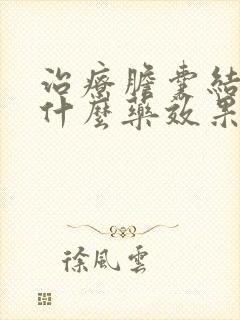 治療膽囊結
什麼藥效果
徐風雲